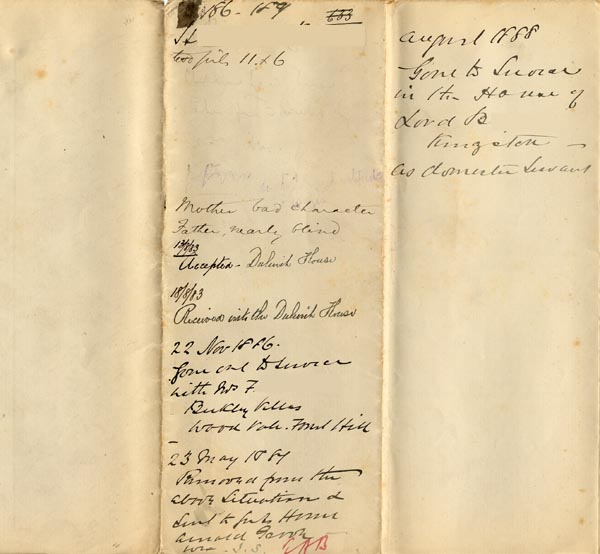 186 - 187
603
two girls 11 & 6
Mother bad character
Father, nearly blind
Accepted - Dulwich House
18/8/83
Received into the Dulwich House
22 Nov 1886.
Gone out to Service
with Mrs F.
Berkley Villas
Wood Vale. Forest Hill
23 May 1887
Removed from the
above Situation &
Sent to Girls Home
Arnold
E A B
August 1888
Gone to Service
in the House of
Lord B
Kingston -
as domestic Servant